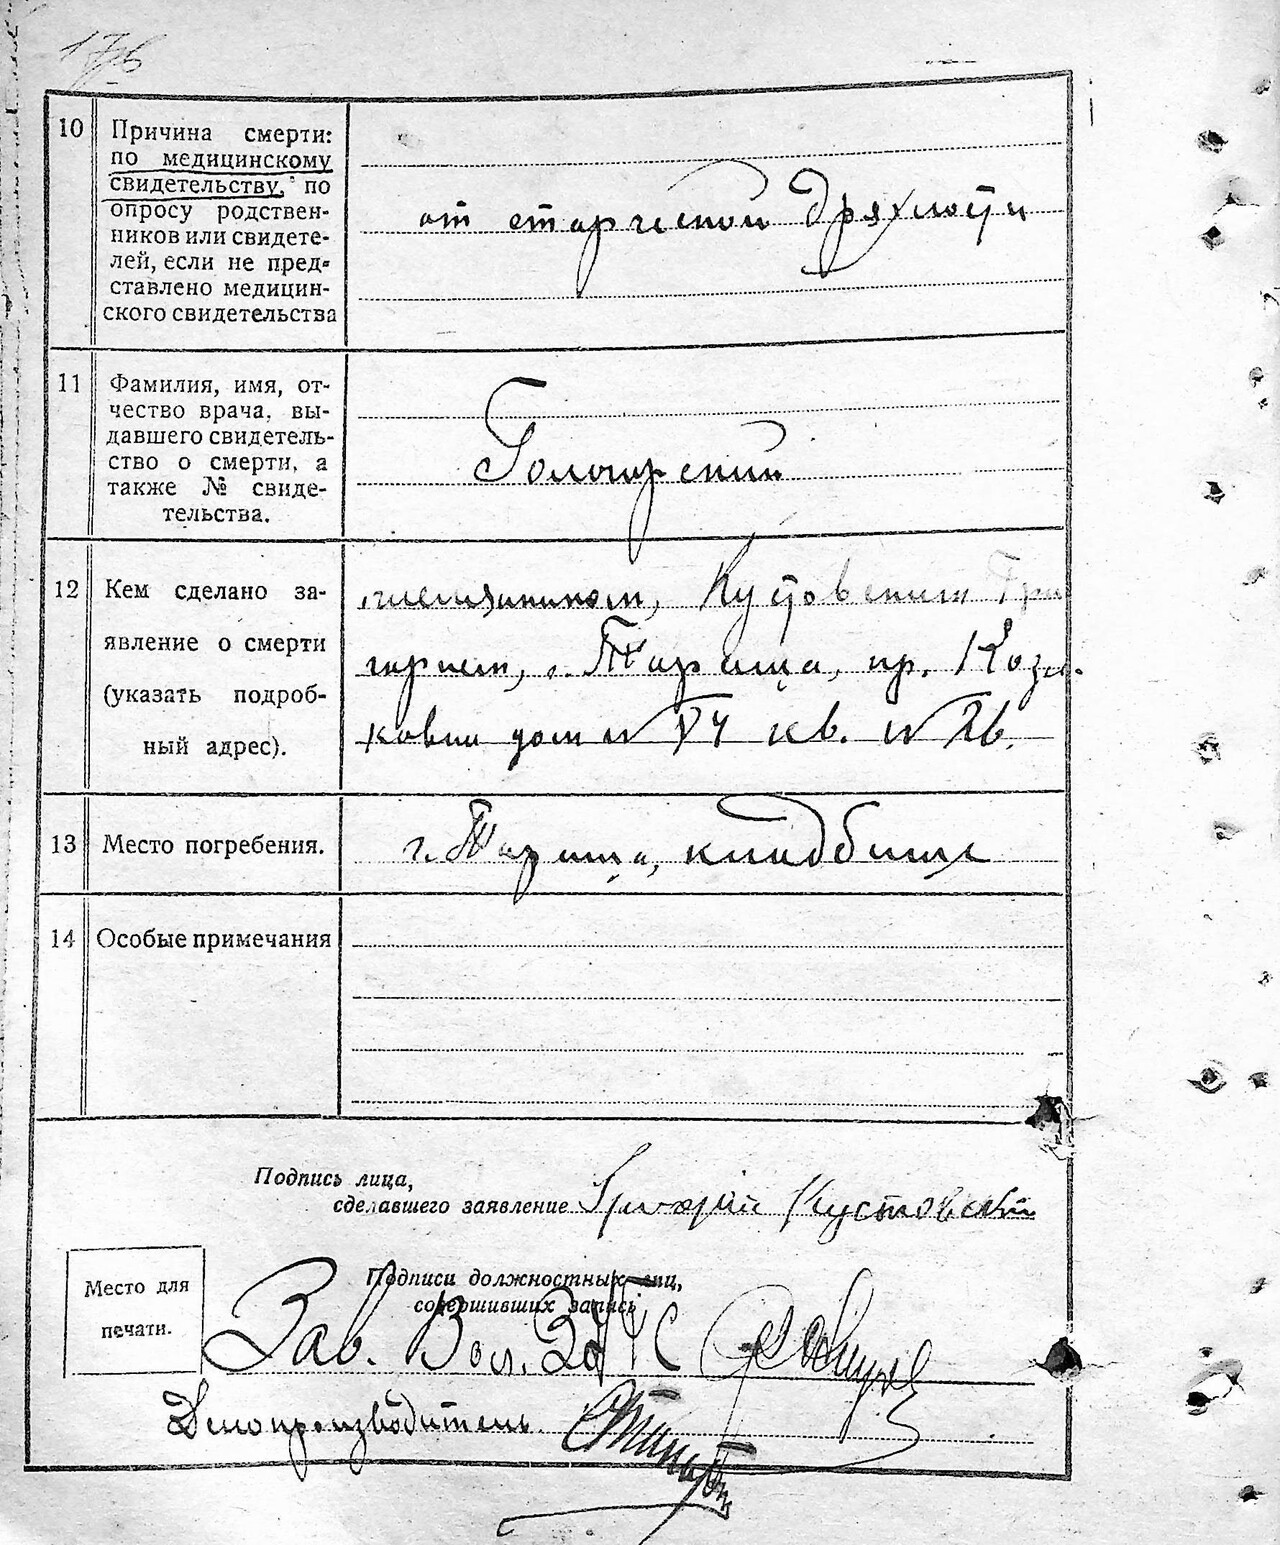 176
10
Причина смерти:
по медицинскому
свидетельству, по
опросу родствен-
ников или свидете-
лей, если не пред-
ставлено медицин-
ского свидетельства
от старческой дряхлости
11
Фамилия, имя, от-
чество врача, вы-
давшего свидетель-
ство о смерти, а
также № свиде-
тельства.
12
Кем сделано за-
явление о смерти
(указать подроб-
ный адрес).
племянником, Кустовским Гри
горием, г. Тараща, пр.
дом № кв. №
13
Место погребения.
г. Тараща, кладбище
14
Особые примечания
Подпись лица,
сделавшего заявление Григорий Кустовский
Место для
печати.
Подписи должностных лиц,
совершивших запись
Зав. Вол. ЗАГС
Делопроизводитель